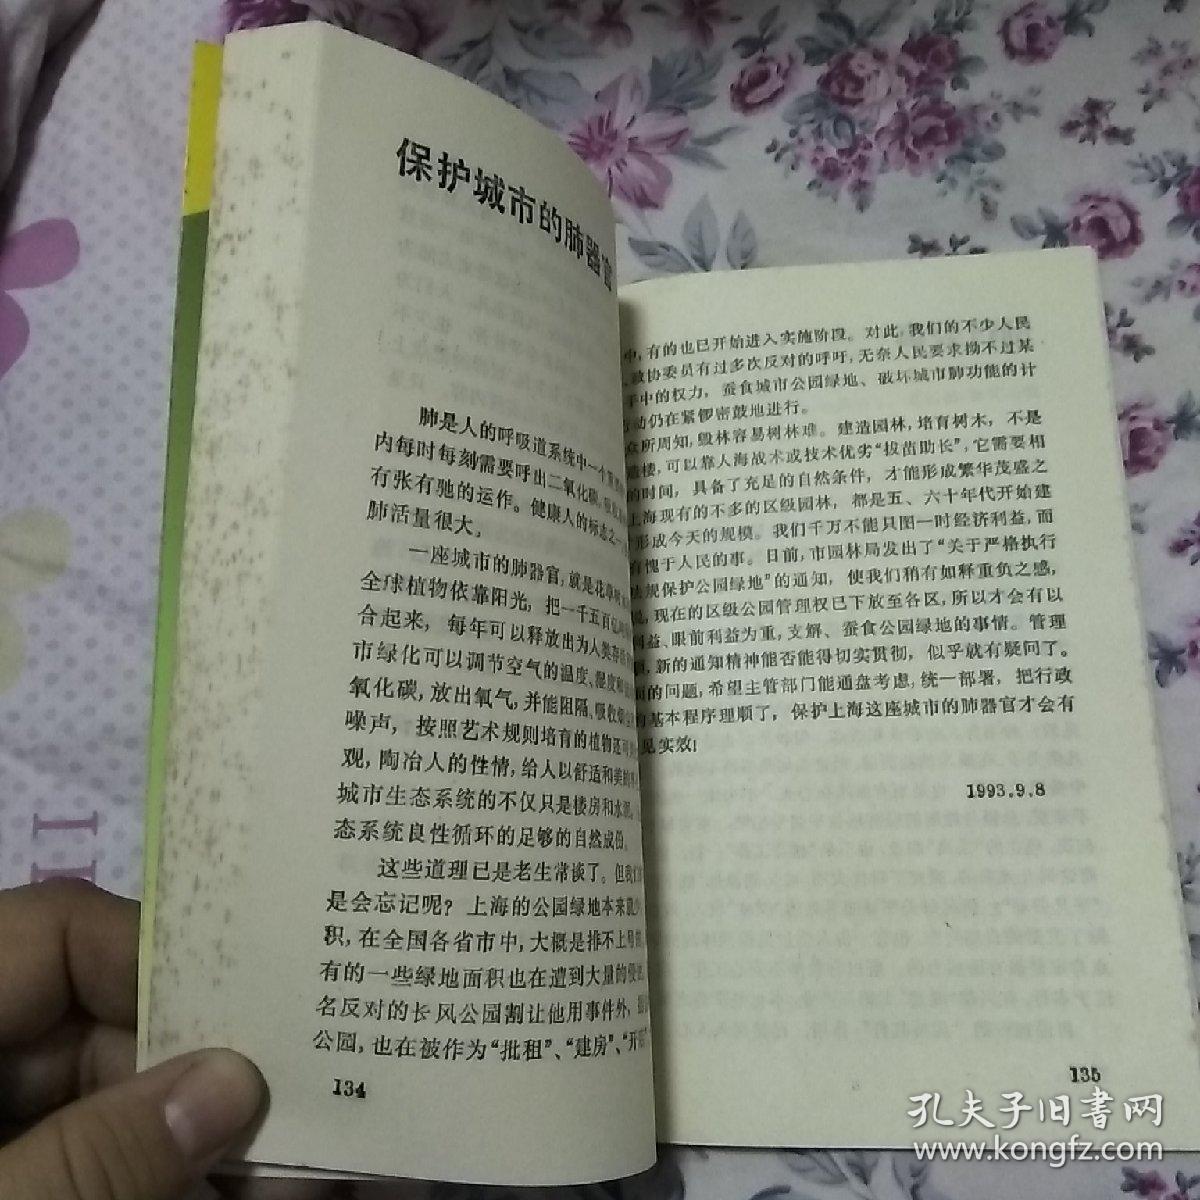 保护城市的肺器官
肺是人的呼吸道系统中一个重
内每时每刻需要呼出二氧化碳,
有张有驰的运作。健康人的标志之一
肺活量很大。
一座城市的肺器官,就是花草
全球植物依靠阳光,把一千五百亿
合起来,每年可以释放出为人类存
市绿化可以调节空气的温度、湿度和
氧化碳,放出氧气,并能阻隔、吸收
噪声,按照艺术规则培育的植物还可
观,陶冶人的性情,给人以舒适和美的
城市生态系统的不仅只是楼房和水泥,
态系统良性循环的足够的自然成份。
这些道理已是老生常谈了。但我们
是会忘记呢?上海的公园绿地本来就少
积,在全国各省市中,大概是排不上号
有的一些绿地面积也在遭到大量的侵
名反对的长风公园割让他用事件外,
公园,也在被作为“批租”、“建房”、“开
134
中,有的也已开始进入实施阶段。对此,我们的不少人民
政协委员有过多次反对的呼吁,无奈人民要求拗不过某
手中的权力,蚕食城市公园绿地、破坏城市肺功能的计
动仍在紧锣密鼓地进行。
众所周知,毁林容易树林难。建造园林,培育树木,不是
造楼,可以靠人海战术或技术优劣“拔苗助长”,它需要相
的时间,具备了充足的自然条件,才能形成繁华茂盛之
上海现有的不多的区级园林,都是五、六十年代开始建
形成今天的规模。我们千万不能只图一时经济利益,而
有愧于人民的事。日前,市园林局发出了“关于严格执行
规保护公园绿地”的通知,使我们稍有如释重负之感,
说,现在的区级公园管理权已下放至各区,所以才会有以
利益、眼前利益为重,支解、蚕食公园绿地的事情。管理
,新的通知精神能否能得切实贯彻,似乎就有疑问了。
的问题,希望主管部门能通盘考虑,统一部署,把行政
的基本程序理顺了,保护上海这座城市的肺器官才会有
见实效!
1993.9.8
135
孔夫子旧书网
www.kongfz.com